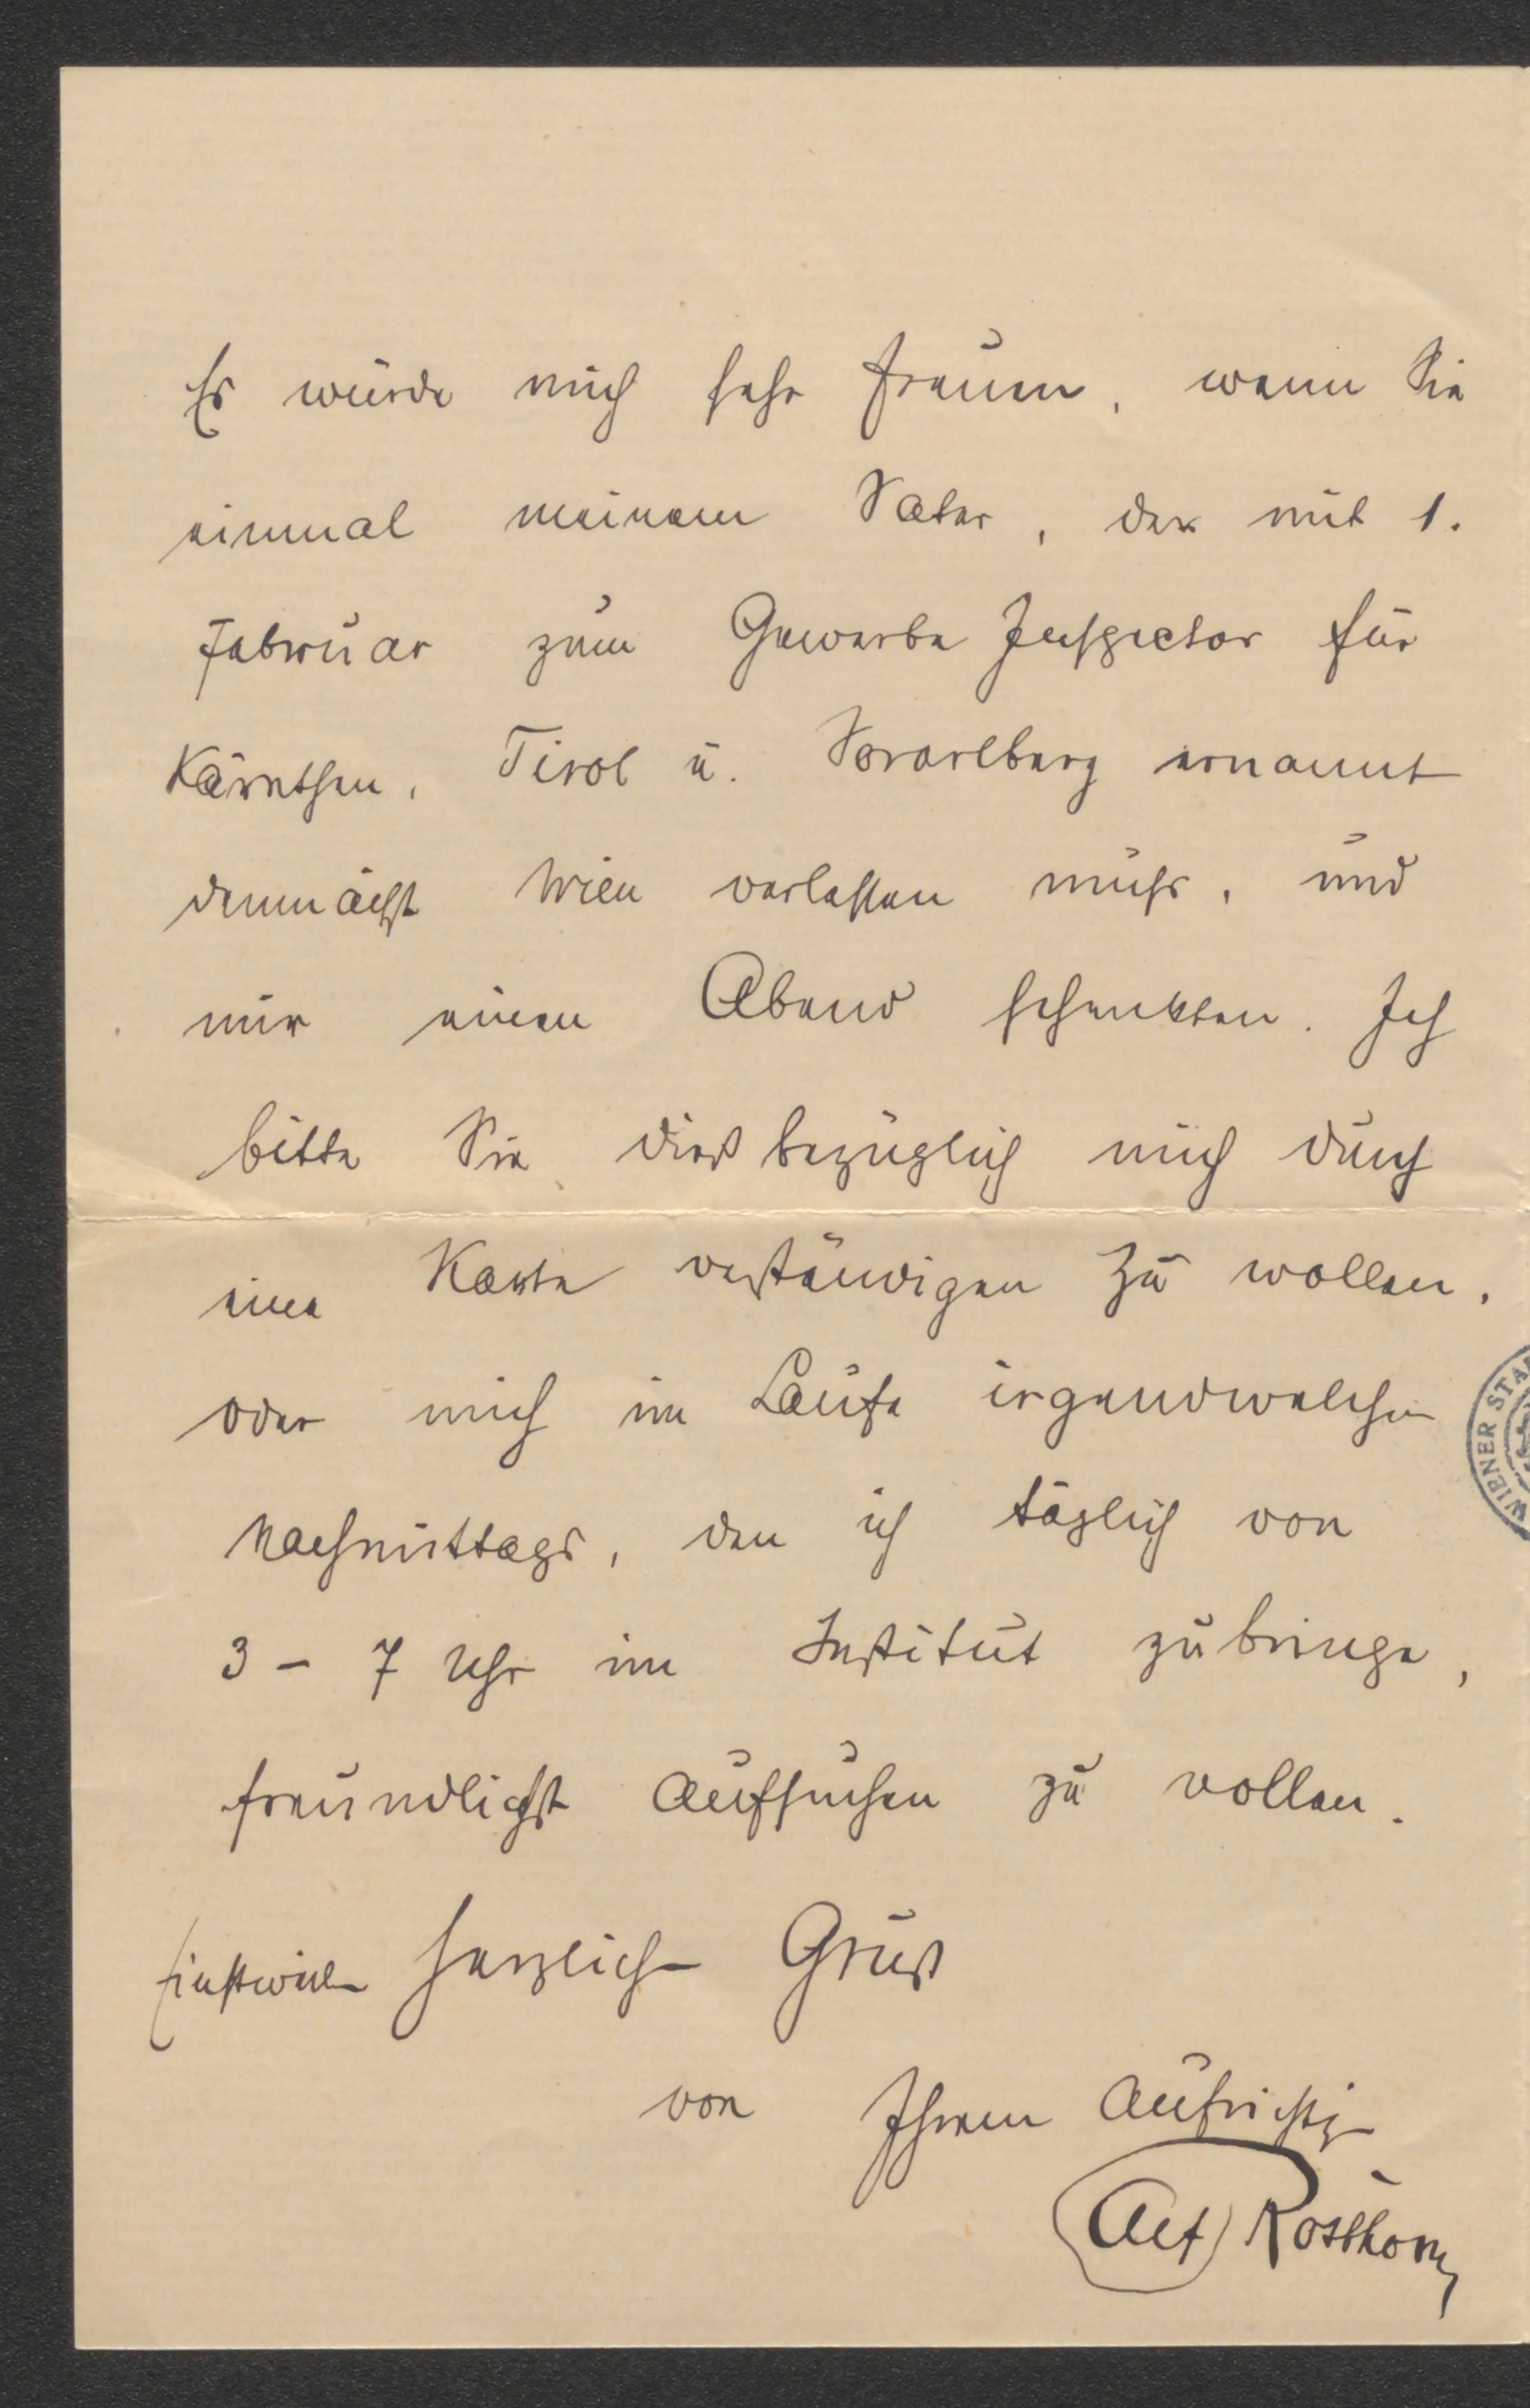 Es würde mich sehr freuen, wenn Sie
einmal meinem Vater, der mit 1.
Februar zum Gewerbe Inspector für
Kärnthen, Tirol u. Vorarlberg ernannt
demnächst Wien verlassen muſs, und
mir einen Abend schenkten. Ich
bitte Sie diesbezüglich mich durch
eine Karte verständigen zu wollen,
oder mich im Laufe irgendwelchen
Nachmittags, den ich täglich von
3 – 7 Uhr im Institut zubringe,
freundlichst aufsuchen zu wollen.
Einstweilen herzlichen Gruß
von Ihrem aufrichtigen
Alf Rosthorn
WIENER STA